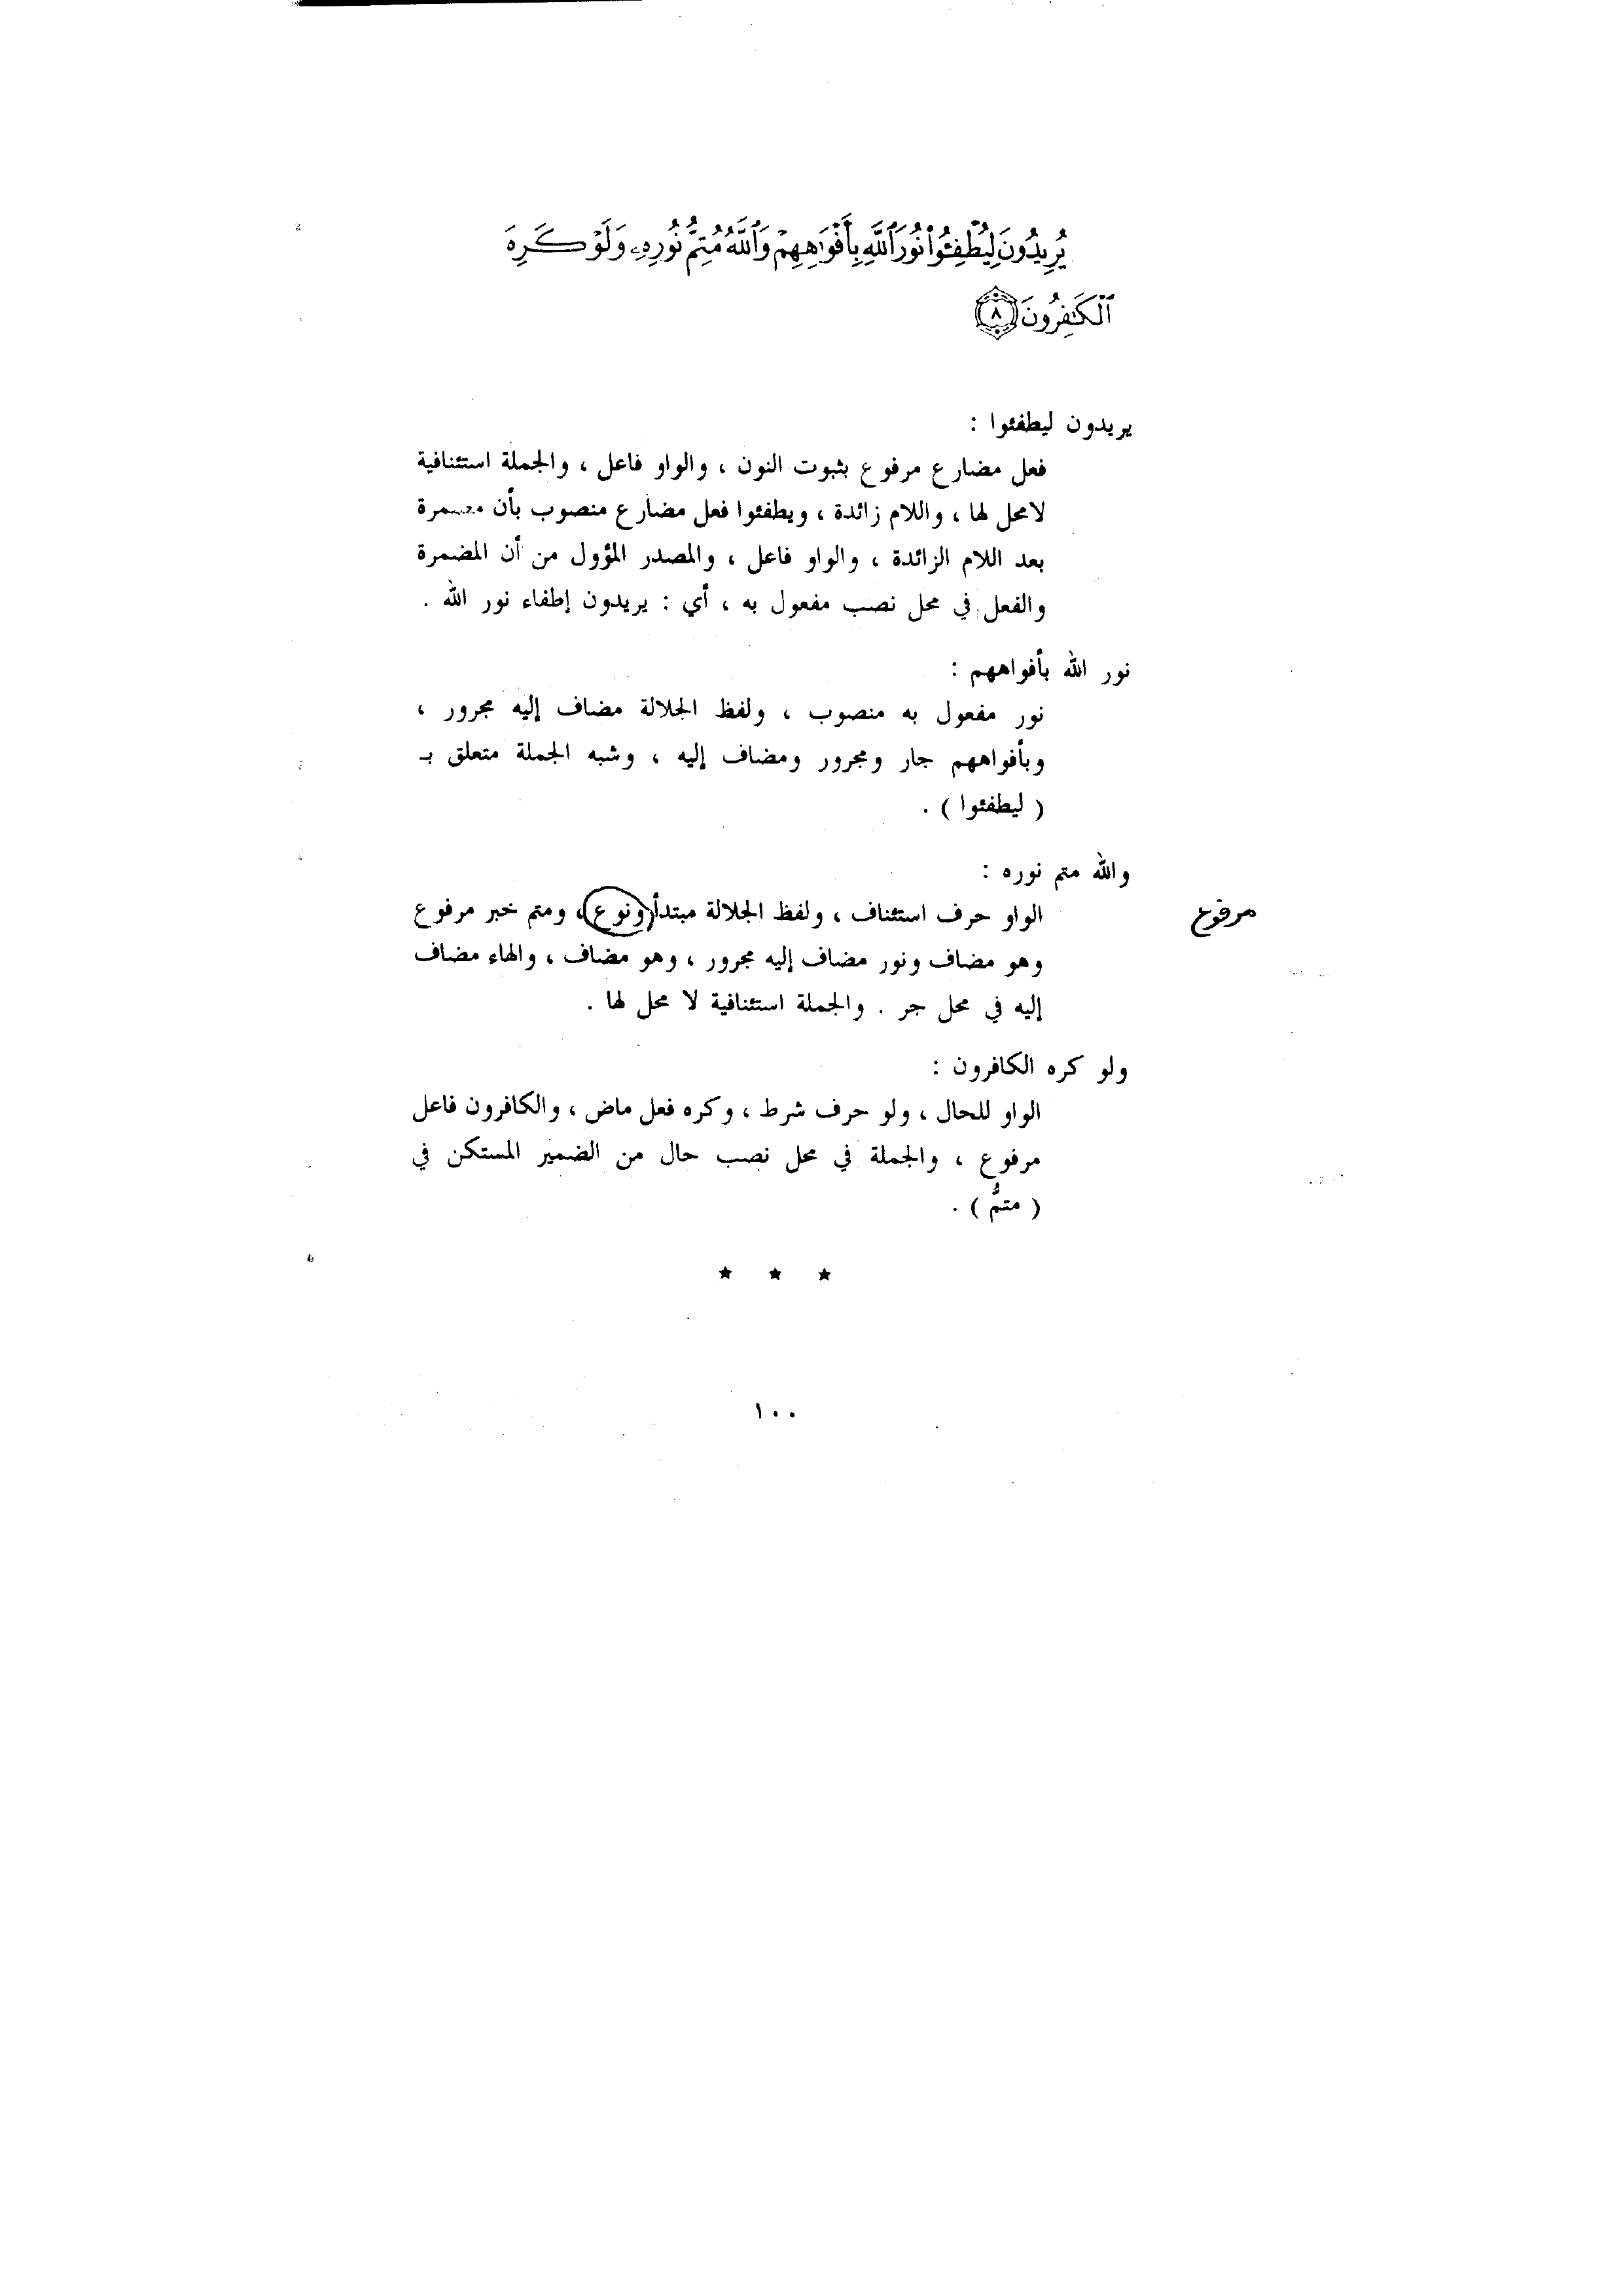 يُرِيدُونَ لِيُطْفِئُوا۟ نُورَ ٱللَّهِ بِأَفْوَٰهِهِمْ وَٱللَّهُ مُتِمُّ نُورِهِۦ وَلَوْ كَرِهَ
ٱلْكَٰفِرُونَ ٨
يريدون ليطفئوا :
فعل مضارع مرفوع بثبوت النون ، والواو فاعل ، والجملة استئنافية
لامحل لها ، واللام زائدة ، ويطفئوا فعل مضارع منصوب بأن مضمرة
بعد اللام الزائدة ، والواو فاعل ، والمصدر المؤول من أن المضمرة
والفعل في محل نصب مفعول به ، أي : يريدون إطفاء نور الله .
نور الله بأفواههم :
نور مفعول به منصوب ، ولفظ الجلالة مضاف إليه مجرور ،
وبأفواههم جار ومجرور ومضاف إليه ، وشبه الجملة متعلق بـ
( ليطفئوا ) .
والله متم نوره :
الواو حرف استئناف ، ولفظ الجلالة مبتدأ ونوع ، ومتم خبر مرفوع
مرفوع
وهو مضاف ونور مضاف إليه مجرور ، وهو مضاف ، والهاء مضاف
إليه في محل جر . والجملة استئنافية لا محل لها .
ولو كره الكافرون :
الواو للحال ، ولو حرف شرط ، وكره فعل ماض ، والكافرون فاعل
مرفوع ، والجملة في محل نصب حال من الضمير المستكن في
( متمُّ ) .
★ ★ ★
١٠٠